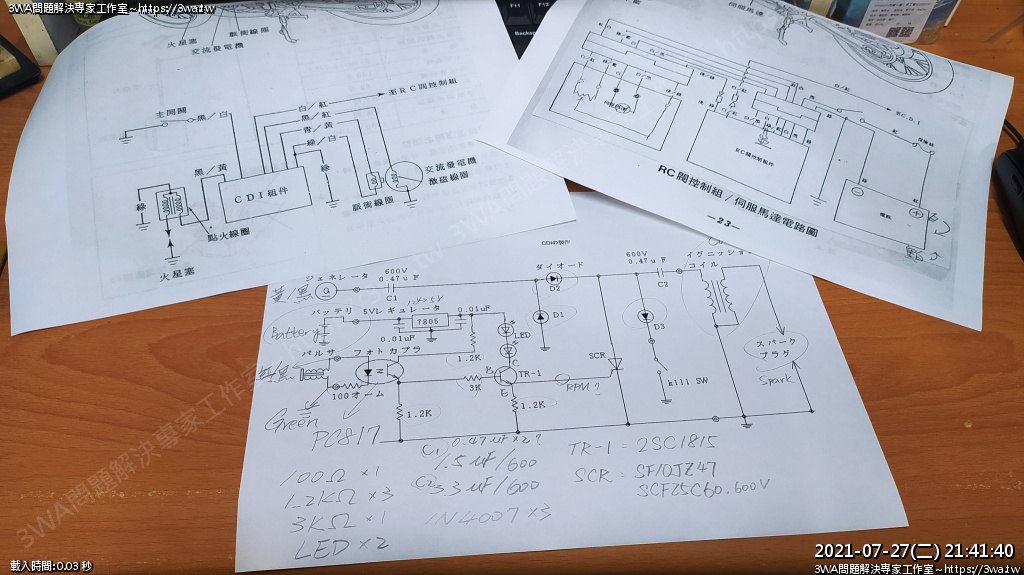 3WA問題解決專家工作室~https://3wa.tw
3WA問題解決專家工作室~https://3wa.tw
火星塞
脈衝線圈
交流發電機
主開關
黑/白
白/紅
黑/紅
青/黃
綠/白
至RC閥控制組
黑/黃
綠
綠
CDI組件
點火線圈
火星塞
脈衝線圈
交流發電機
激磁線圈
伺服馬達
RC閥控制組件
至CDI
電瓶
RC閥控制組/伺服馬達電路圖
—23—
F11
CDIの製作
ジェネレータ
600V
0.47uF
C1
ダイオード
D2
600V
0.47uF
C2
イグニッション
コイル
バッテリ
5Vレギュレータ
7805
0.01uF
0.01uF
Battery
LED
D1
D3
パルサ
フォトカプラ
1.2K
SCR
スパーク
プラグ
Spark
100オーム
3K
B
C
E
TR-1
RPM?
kill SW
1.2K
1.2K
Green
PC817
C1 0.47uF×2?
1.5uF/600
C2 3.3uF/600
1N4007×3
TR-1=2SC1815
SCR=SF10JZ47
SCF25C60,600V
100Ω×1
1.2KΩ×3
3KΩ×1
LED×2
載入時間:0.03 秒
2021-07-27(二) 21:41:40
3WA問題解決專家工作室~https://3wa.tw